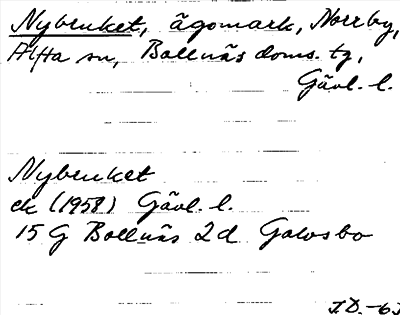 Nybruket, ägomark, Norrby,
Alfta sn, Bollnäs doms. tg,
Gävl. l.
Nybruket
ek (1958) Gävl. l.
15 G Bollnäs 2d Galvsbo
J.D. -63